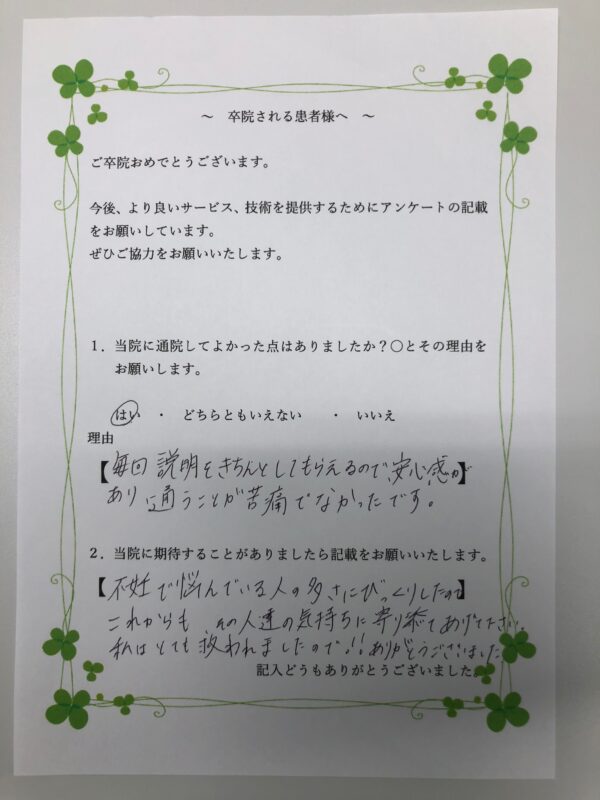 ～ 卒院される患者様へ ～
ご卒院おめでとうございます。
今後、より良いサービス、技術を提供するためにアンケートの記載
をお願いしています。
ぜひご協力をお願いいたします。
１．当院に通院してよかった点はありましたか？○とその理由を
お願いします。
はい ・ どちらともいえない ・ いいえ
理由
【毎回説明をきちんとしてもらえるので、安心感が】
あり通うことが苦痛でなかったです。
２．当院に期待することがありましたら記載をお願いいたします。
【不妊で悩んでいる人の多さにびっくりしたので】
これからも、その人達の気持ちに寄り添てあげて下さい。
私はとても救われましたので!!ありがとうございました。
記入どうもありがとうございました。